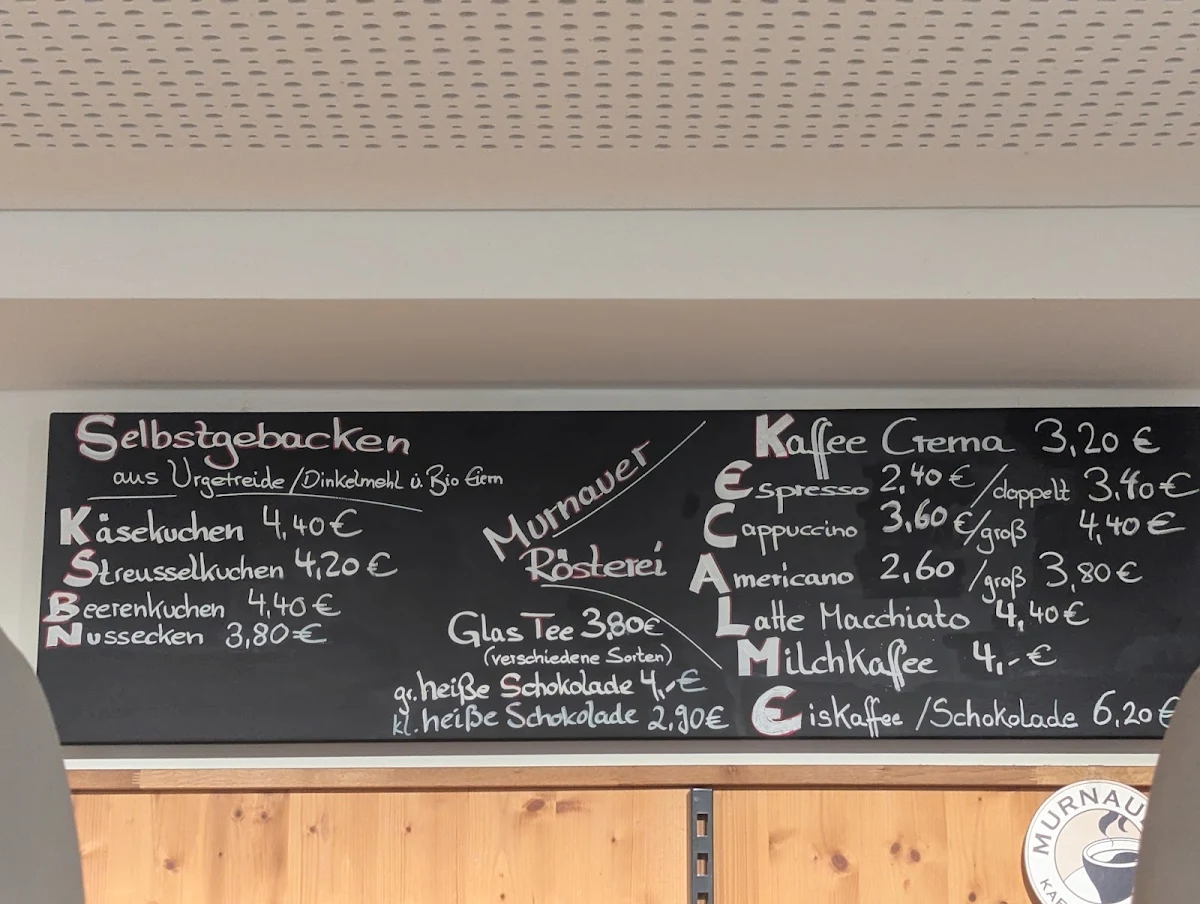 Selbstgebacken
aus Urgetreide/Dinkelmehl ü. Bio Eiern
Käsekuchen 4,40€
Streusselkuchen 4,20€
Beerenkuchen 4,40€
Nussecken 3,80€
Murnauer
Rösterei
Glas Tee 3,80€
(verschiedene Sorten)
gr. heiße Schokolade 4,-€
kl. heiße Schokolade 2,90€
Kaffee Crema 3,20 €
Espresso 2,40 € /doppelt 3,40€
Cappuccino 3,60 €/groß 4,40 €
Americano 2,60 /groß 3,80€
Latte Macchiato 4,40€
Milchkaffee 4,-€
Eiskaffee /Schokolade 6,20€
MURNAU
KAF